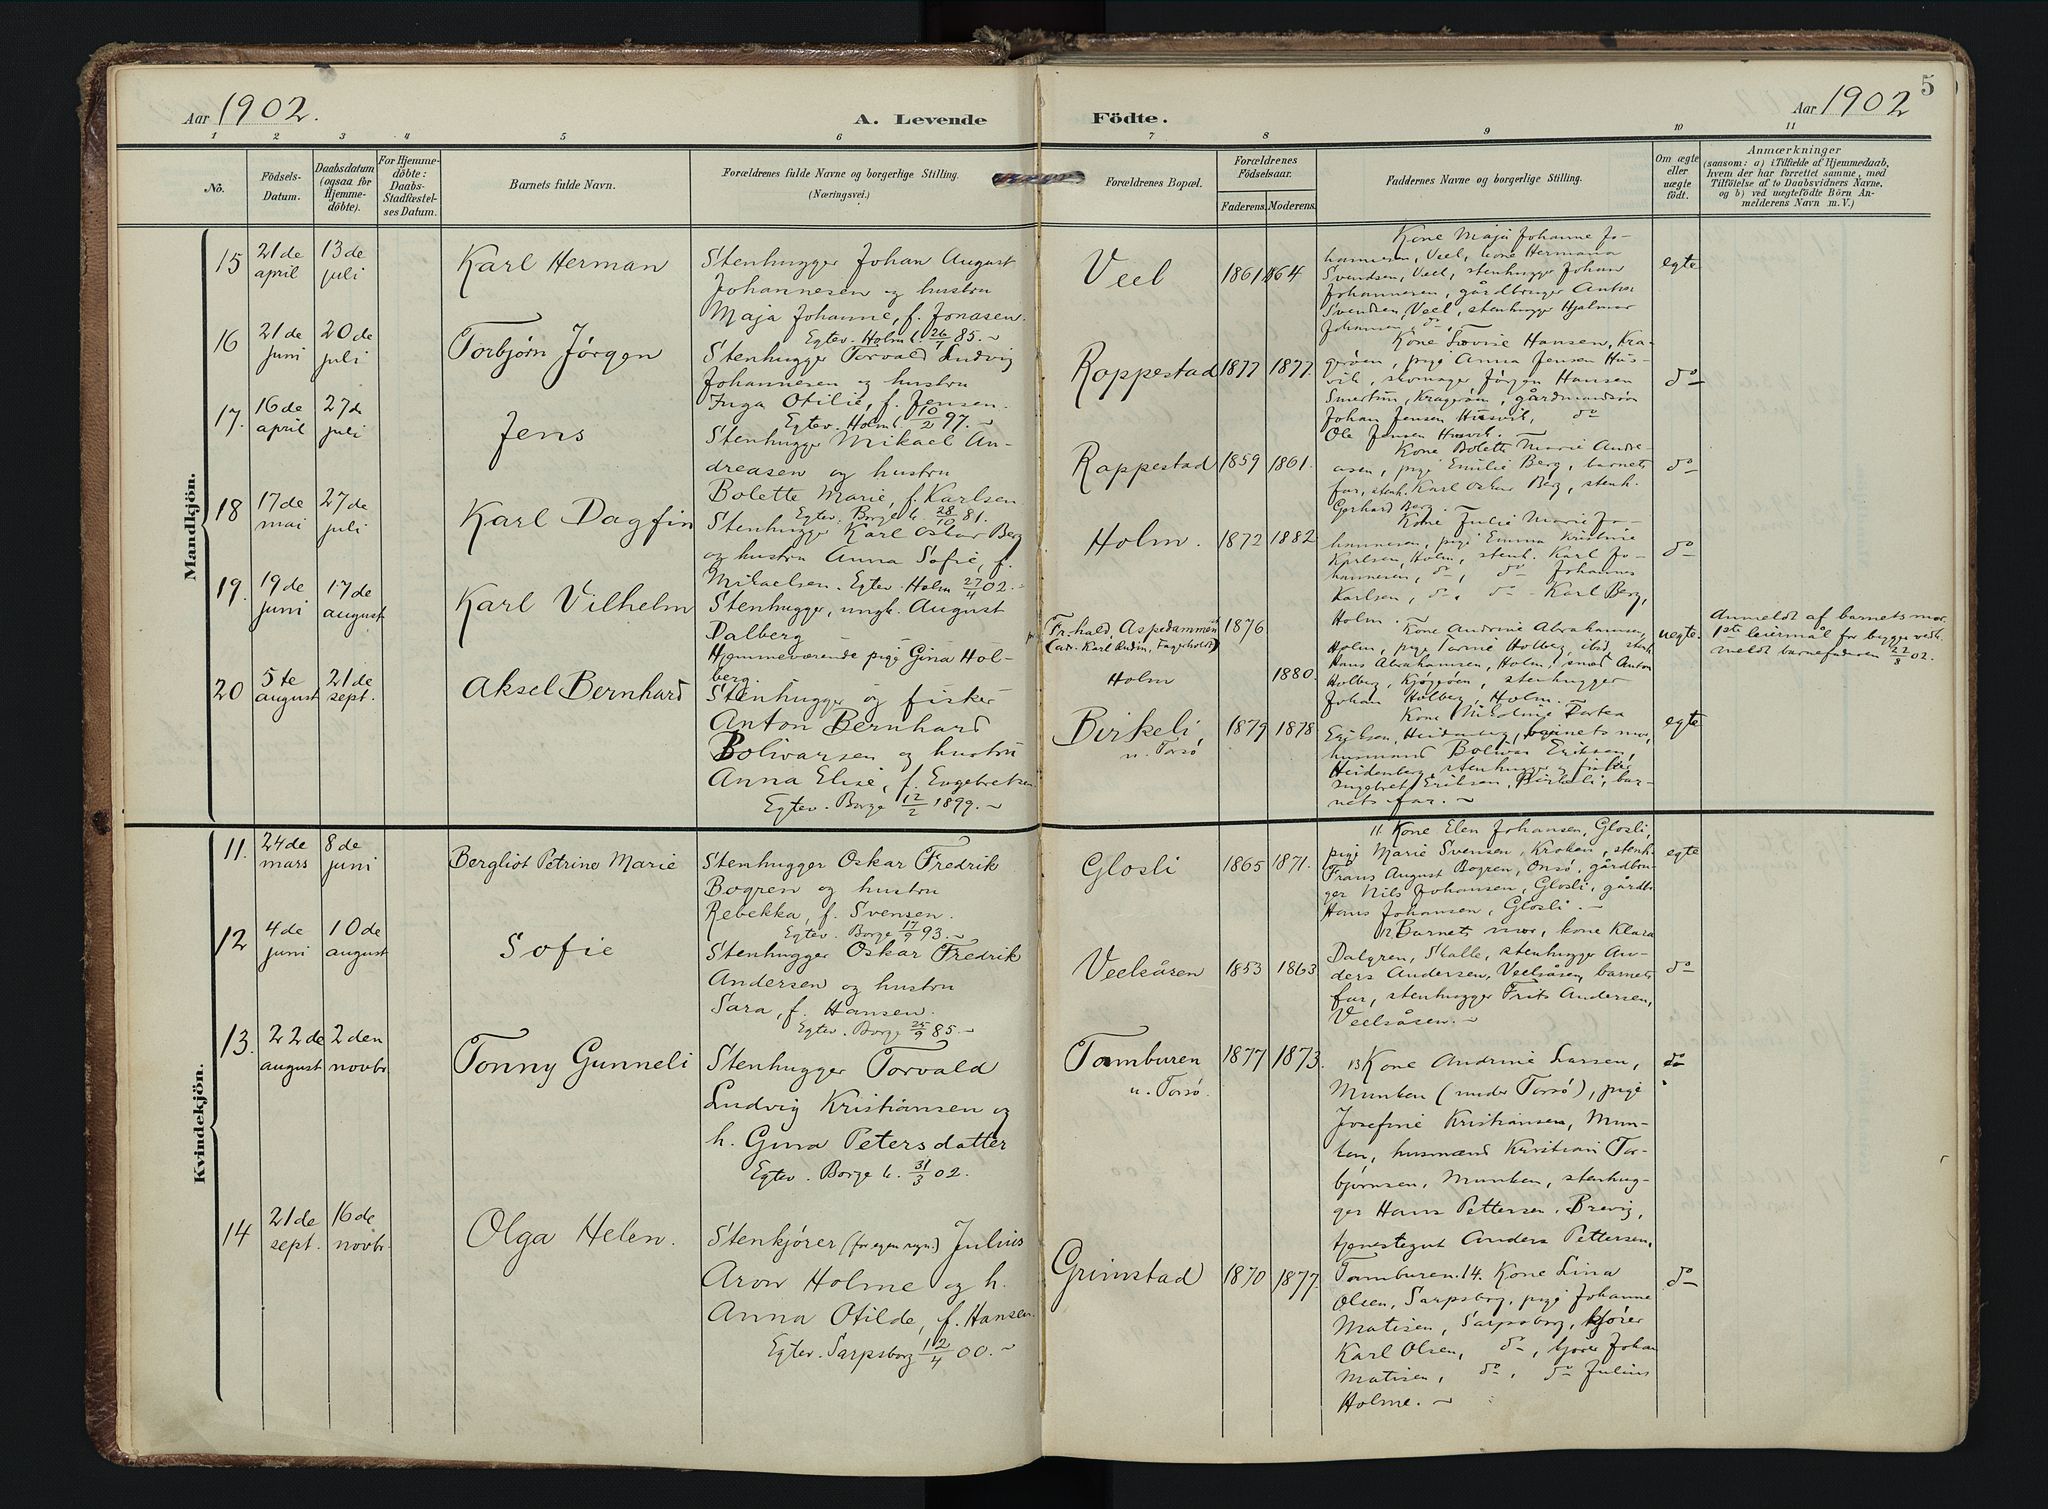 5
Aar 1902.
A. Levende Födte.
Aar 1902
1 2 3 4 5 6 7 8 9 10 11
No.
Födsels-Datum.
Daabsdatum (ogsaa for Hjemme-döbte).
For Hjemme-döbte: Daabs-Stadfæstel-ses Datum.
Barnets fulde Navn.
Forældrenes fulde Navne og borgerlige Stilling.
(Næringsvei.)
Forældrenes Bopæl.
Forældrenes Födselsaar.
Faderens. Moderens.
Faddernes Navne og borgerlige Stilling.
Om ægte eller uægte födt.
Anmærkninger
(saasom: a) i Tilfælde af Hjemmedaab,
hvem der har forrettet samme, med
Tilföielse af to Daabsvidners Navne,
og b) ved uægtefödte Börn An-
melderens Navn m. V.)
Mandkjön.
15 21de april 13de juli
Karl Herman
Stenhugger Johan August
Johannesen og hustru
Maja Johanne, f. Jonasen.
Egtev. Holm 26/7 85.
Veel
1861 1864
Kone Maja Johanne Jo-
hannesen, Veel, kone Hermana
Svendsen, Veel, stenhugger Johan
Johannesen, gårdbruger Anton
Svendsen, Veel, stenhugger Hjalmar
Johansen, do.
egte
16 21de juni 20de juli
Torbjørn Jørgen
Stenhugger Torvald Ludvig
Johannesen og hustru
Inga Otilie, f. Jensen.
Egtev. Holm 10/2 97.
Rappestad
1877 1877
Kone Lovise Hansen, Kra-
gerøen, pige Anna Jensen Hus-
vik, skomager Jørgen Hansen
Kragerøen, gårdmandssøn
Johan Jensen Husvik, do
Ole Jensen Husvik.
do
17. 16de april 27de juli
Jens
Stenhugger Mikael An-
dreasen og hustru
Bolette Marie, f. Karlsen.
Egtev. Borge k. 28/10 81.
Rappestad
1859 1861.
Kone Bolette Marie Andre-
asen, pige Emilie Berg, barnets
far, stenh. Karl Oskar Berg, stenh.
Gerhard Berg.
do
18 17de mai 27de juli
Karl Dagfin
Stenhugger Karl Oskar Berg
og hustru Anna Sofie, f.
Mikaelsen. Egtev. Holm 27/4 02.
Holm.
1872 1882.
Kone Julie Marie Jo-
hannesen, pige Emma Kristine
Karlsen, Holm, stenh. Karl Jo-
hannesen, do, do Johannes
Karlsen, do, do Karl Berg,
Holm.
do
19. 19de juni 17de august
Karl Vilhelm
Stenhugger, ungk. August
Dalberg
Hjemmeværende pige Gina Hol-
berg.
Fr.hald, Aspedammen
(adr. Karl Rudin, Fagerholt)
Holm
1876
1880.
Kone Andrine Abrahamsen,
Holm, pige Tomine Holberg, ibid, stenh.
Hans Abrahamsen, Holm, smed Anton
Holberg, Kjøgøen, stenhugger
Johan Holberg, Holm.
uegte.
Anmeldt af barnets mor
1ste leiermål for begge vedk.
meldt barnefaderen 22/8 02.
20 5te august 21de sept.
Aksel Bernhard
Stenhugger og fisker
Anton Bernhard
Bolivarsen og hustru
Anna Elise, f. Engebretsen
Egtev. Borge 12/2 1899.
Birkeli,
u. Torsø
1879 1878
Kone Nikoline Dortea
Eriksen, Heidenberg, barnets mor,
husmand Bolivar Eriksen,
Heidenberg, stenhugger og fisker
Ingebret Eriksen, Birkeli, bar-
nets far.
egte
Kvindekjön.
11. 24de mars 8de juni
Bergliot Petrine Marie
Stenhugger Oskar Fredrik
Bogren og hustru
Rebekka, f. Svensen.
Egtev. Borge 17/9 93.
Glosli
1865 1871.
11. Kone Elen Johansen, Glosli,
pige Marie Svensen, Kroken, stenh.
Frans August Bogren, Onsø, gårdbru-
ger Nils Johansen, Glosli, gårdbr.
Hans Johansen, Glosli.
egte
12 4de juni 10de august
Sofie
Stenhugger Oskar Fredrik
Andersen og hustru
Sara, f. Hansen.
Egtev. Borge 25/9 85.
Veelsåsen
1853 1863
12 Barnets mor, kone Klara
Dalgren, Skalle, stenhugger An-
ders Andersen, Veelsåsen, barnets
far, stenhugger Frits Andersen,
Veelsåsen.
do
13. 22de august 2den novbr
Tonny Gunneli
Stenhugger Torvald
Ludvig Kristiansen og
h. Gina Petersdatter
Egtev. Borge k. 31/3 02.
Tamburen
u. Torsø.
1877 1873.
13 Kone Andrine Larsen,
Munken (under Torsø), pige
Josefine Kristiansen, Mun-
ken, husmand Kristian Tor-
bjørnsen, Munken, stenhug-
ger Hans Pettersen, Brevig,
tjenestegut Anders Pettersen,
Tamburen.
do
14 21de sept. 16de novbr.
Olga Helen.
Stenkjører (for egen regn.) Julius
Aron Holme og h.
Anna Otilde, f. Hansen.
Egtev. Sarpsborg 12/4 00.
Grimstad
1870 1877
14. Kone Lina
Olsen, Sarpsborg, pige Johanne
Matisen, Sarpsborg, kjører
Karl Olsen, do, kjører Johan
Matisen, do, do Julius
Holme.
do